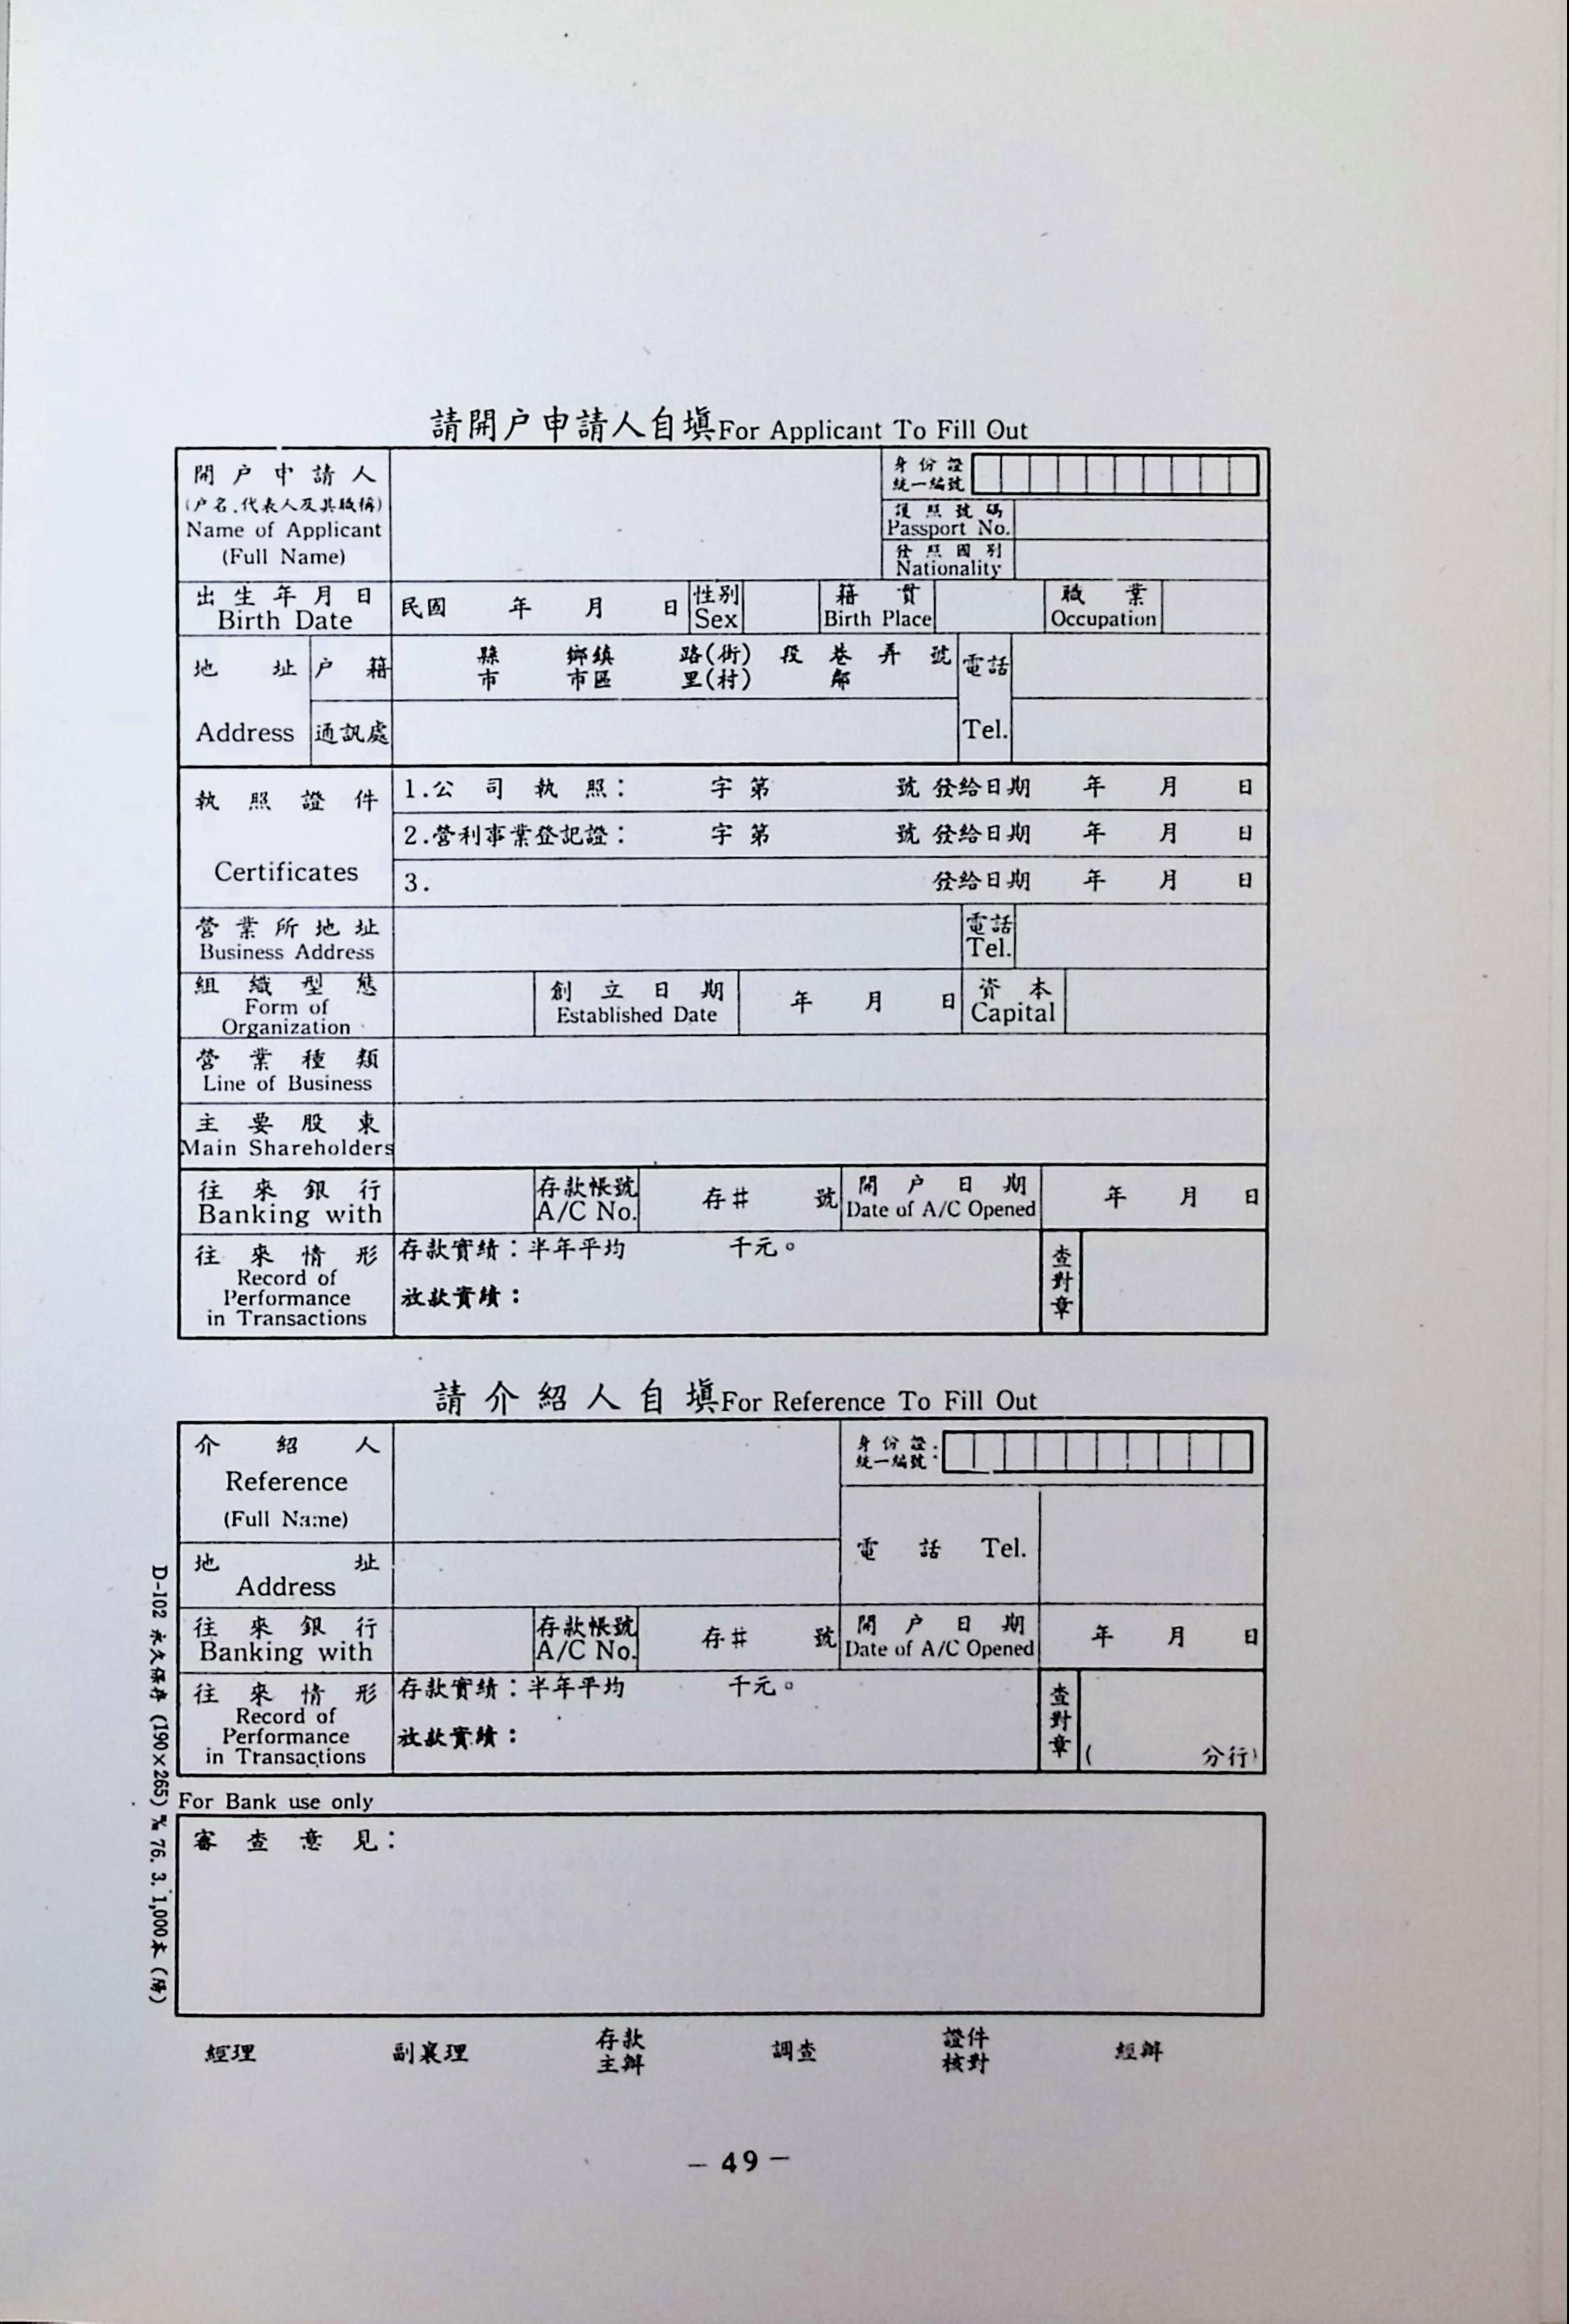 請開戶申請人自塡For Applicant To Fill Out
開戶申請人
(戶名.代表人及其職稱)
Name of Applicant
(Full Name)
身份證
統一編號
護照號碼
Passport No.
發照國別
Nationality
出生年月日
Birth Date
民國 年 月 日
性別
Sex
籍貫
Birth Place
職業
Occupation
地址
Address
戶籍
縣 鄉鎮 路(街) 段 巷 弄 號
市 市區 里(村) 鄰
通訊處
電話
Tel.
執照證件
Certificates
1.公司執照: 字第 號 發給日期 年 月 日
2.營利事業登記證: 字第 號 發給日期 年 月 日
3. 發給日期 年 月 日
營業所地址
Business Address
電話
Tel.
組織型態
Form of
Organization
創立日期
Established Date
年 月 日
資本
Capital
營業種類
Line of Business
主要股東
Main Shareholders
往來銀行
Banking with
存款帳號
A/C No.
存# 號
開戶日期
Date of A/C Opened
年 月 日
往來情形
Record of
Performance
in Transactions
存款實績:半年平均 千元。
放款實績:
查對章
請介紹人自塡For Reference To Fill Out
介紹人
Reference
(Full Name)
身份證:
統一編號
地址
Address
電話 Tel.
往來銀行
Banking with
存款帳號
A/C No.
存# 號
開戶日期
Date of A/C Opened
年 月 日
往來情形
Record of
Performance
in Transactions
存款實績:半年平均 千元。
放款實績:
查對章
( 分行)
For Bank use only
審查意見:
經理 副襄理 存款主辦 調查 證件核對 經辦
D-102 永久保存 (190×265)㎜ 76. 3. 1,000本
— 49 —